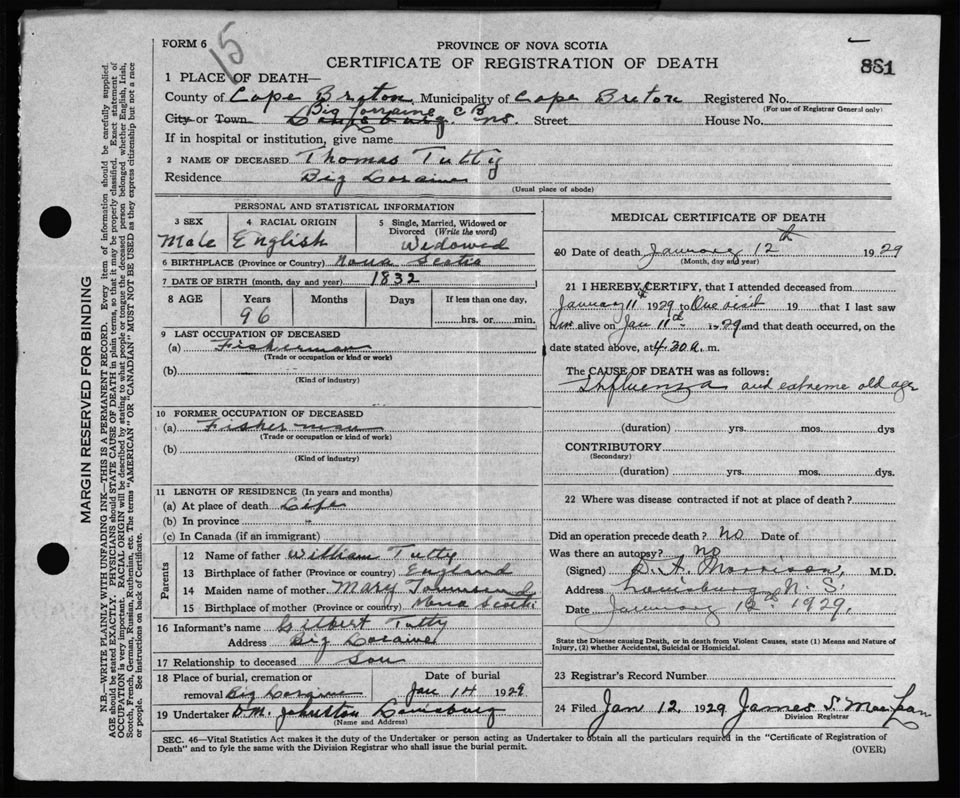 FORM 6
15
PROVINCE OF NOVA SCOTIA
CERTIFICATE OF REGISTRATION OF DEATH
881
1 PLACE OF DEATH—
County of Cape Breton, Municipality of Cape Breton Registered No.
(For use of Registrar General only)
Big Loraine C B
City or Town. Louisburg. N.S. Street House No.
If in hospital or institution, give name
2 NAME OF DECEASED Thomas Tutty
Residence Big Loraine
(Usual place of abode)
PERSONAL AND STATISTICAL INFORMATION
3 SEX 4 RACIAL ORIGIN 5 Single, Married, Widowed or Divorced (Write the word)
Male English Widowed
6 BIRTHPLACE (Province or Country) Nova Scotia
7 DATE OF BIRTH (month, day and year) 1832
8 AGE Years Months Days If less than one day,
96 hrs. or min.
9 LAST OCCUPATION OF DECEASED
(a) Fisherman
(Trade or occupation or kind or work)
(b)
(Kind of industry)
10 FORMER OCCUPATION OF DECEASED
(a) Fisherman
(Trade or occupation or kind of work)
(b)
(Kind of industry)
11 LENGTH OF RESIDENCE (In years and months)
(a) At place of death Life
(b) In province "
(c) In Canada (if an immigrant)
Parents
12 Name of father William Tutty
13 Birthplace of father (Province or country) England
14 Maiden name of mother Mary Townsend
15 Birthplace of mother (Province or country) Nova Scotia
16 Informant's name Gilbert Tutty
Address Big Loraine
17 Relationship to deceased Son
18 Place of burial, cremation or Date of burial
removal Big Loraine Jan 14 1929
19 Undertaker D.M. Johnston Louisburg
(Name and Address)
MEDICAL CERTIFICATE OF DEATH
20 Date of death January 12th 1929
(Month, day and year)
21 I HEREBY CERTIFY, that I attended deceased from
January 11th 1929 to One visit 19 that I last saw
him alive on Jan 11th 1929 and that death occurred, on the
date stated above, at 4.30 a. m.
The CAUSE OF DEATH was as follows:
Influenza and extreme old age
(duration) yrs. mos. dys
CONTRIBUTORY
(Secondary)
(duration) yrs. mos. dys.
22 Where was disease contracted if not at place of death?
Did an operation precede death? No Date of
Was there an autopsy? No
(Signed) D. A. Morrison, M.D.
Address Louisburg N. S.
Date January 12th 1929.
State the Disease causing Death, or in death from Violent Causes, state (1) Means and Nature of
Injury, (2) whether Accidental, Suicidal or Homicidal.
23 Registrar's Record Number
24 Filed Jan 12 1929 James S. MacLean
Division Registrar
SEC. 46—Vital Statistics Act makes it the duty of the Undertaker or person acting as Undertaker to obtain all the particulars required in the "Certificate of Registration of
Death" and to fyle the same with the Division Registrar who shall issue the burial permit.
(OVER)
MARGIN RESERVED FOR BINDING
N.B.—WRITE PLAINLY WITH UNFADING INK—THIS IS A PERMANENT RECORD. Every item of information should be carefully supplied.
AGE should be stated EXACTLY. PHYSICIANS should STATE CAUSE OF DEATH in plain terms, so that it may be properly classified. Exact statement of
OCCUPATION is very important. RACIAL ORIGIN will be described by stating to what people or tongue the deceased person belonged whether English, Irish,
Scotch, French, German, Russian, Ruthenian, etc. The terms "AMERICAN" OR "CANADIAN" MUST NOT BE USED as they express citizenship but not a race
or people. See instructions on back of Certificate.